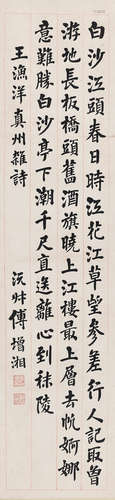 白沙江頭春日時江花江草望參差行人記取曾
游地長板橋頭舊酒旗曉上江樓最上層去帆婀娜
意難勝白沙亭下潮千尺直送離心到秣陵
王漁洋真州雜詩
沅叔傅增湘